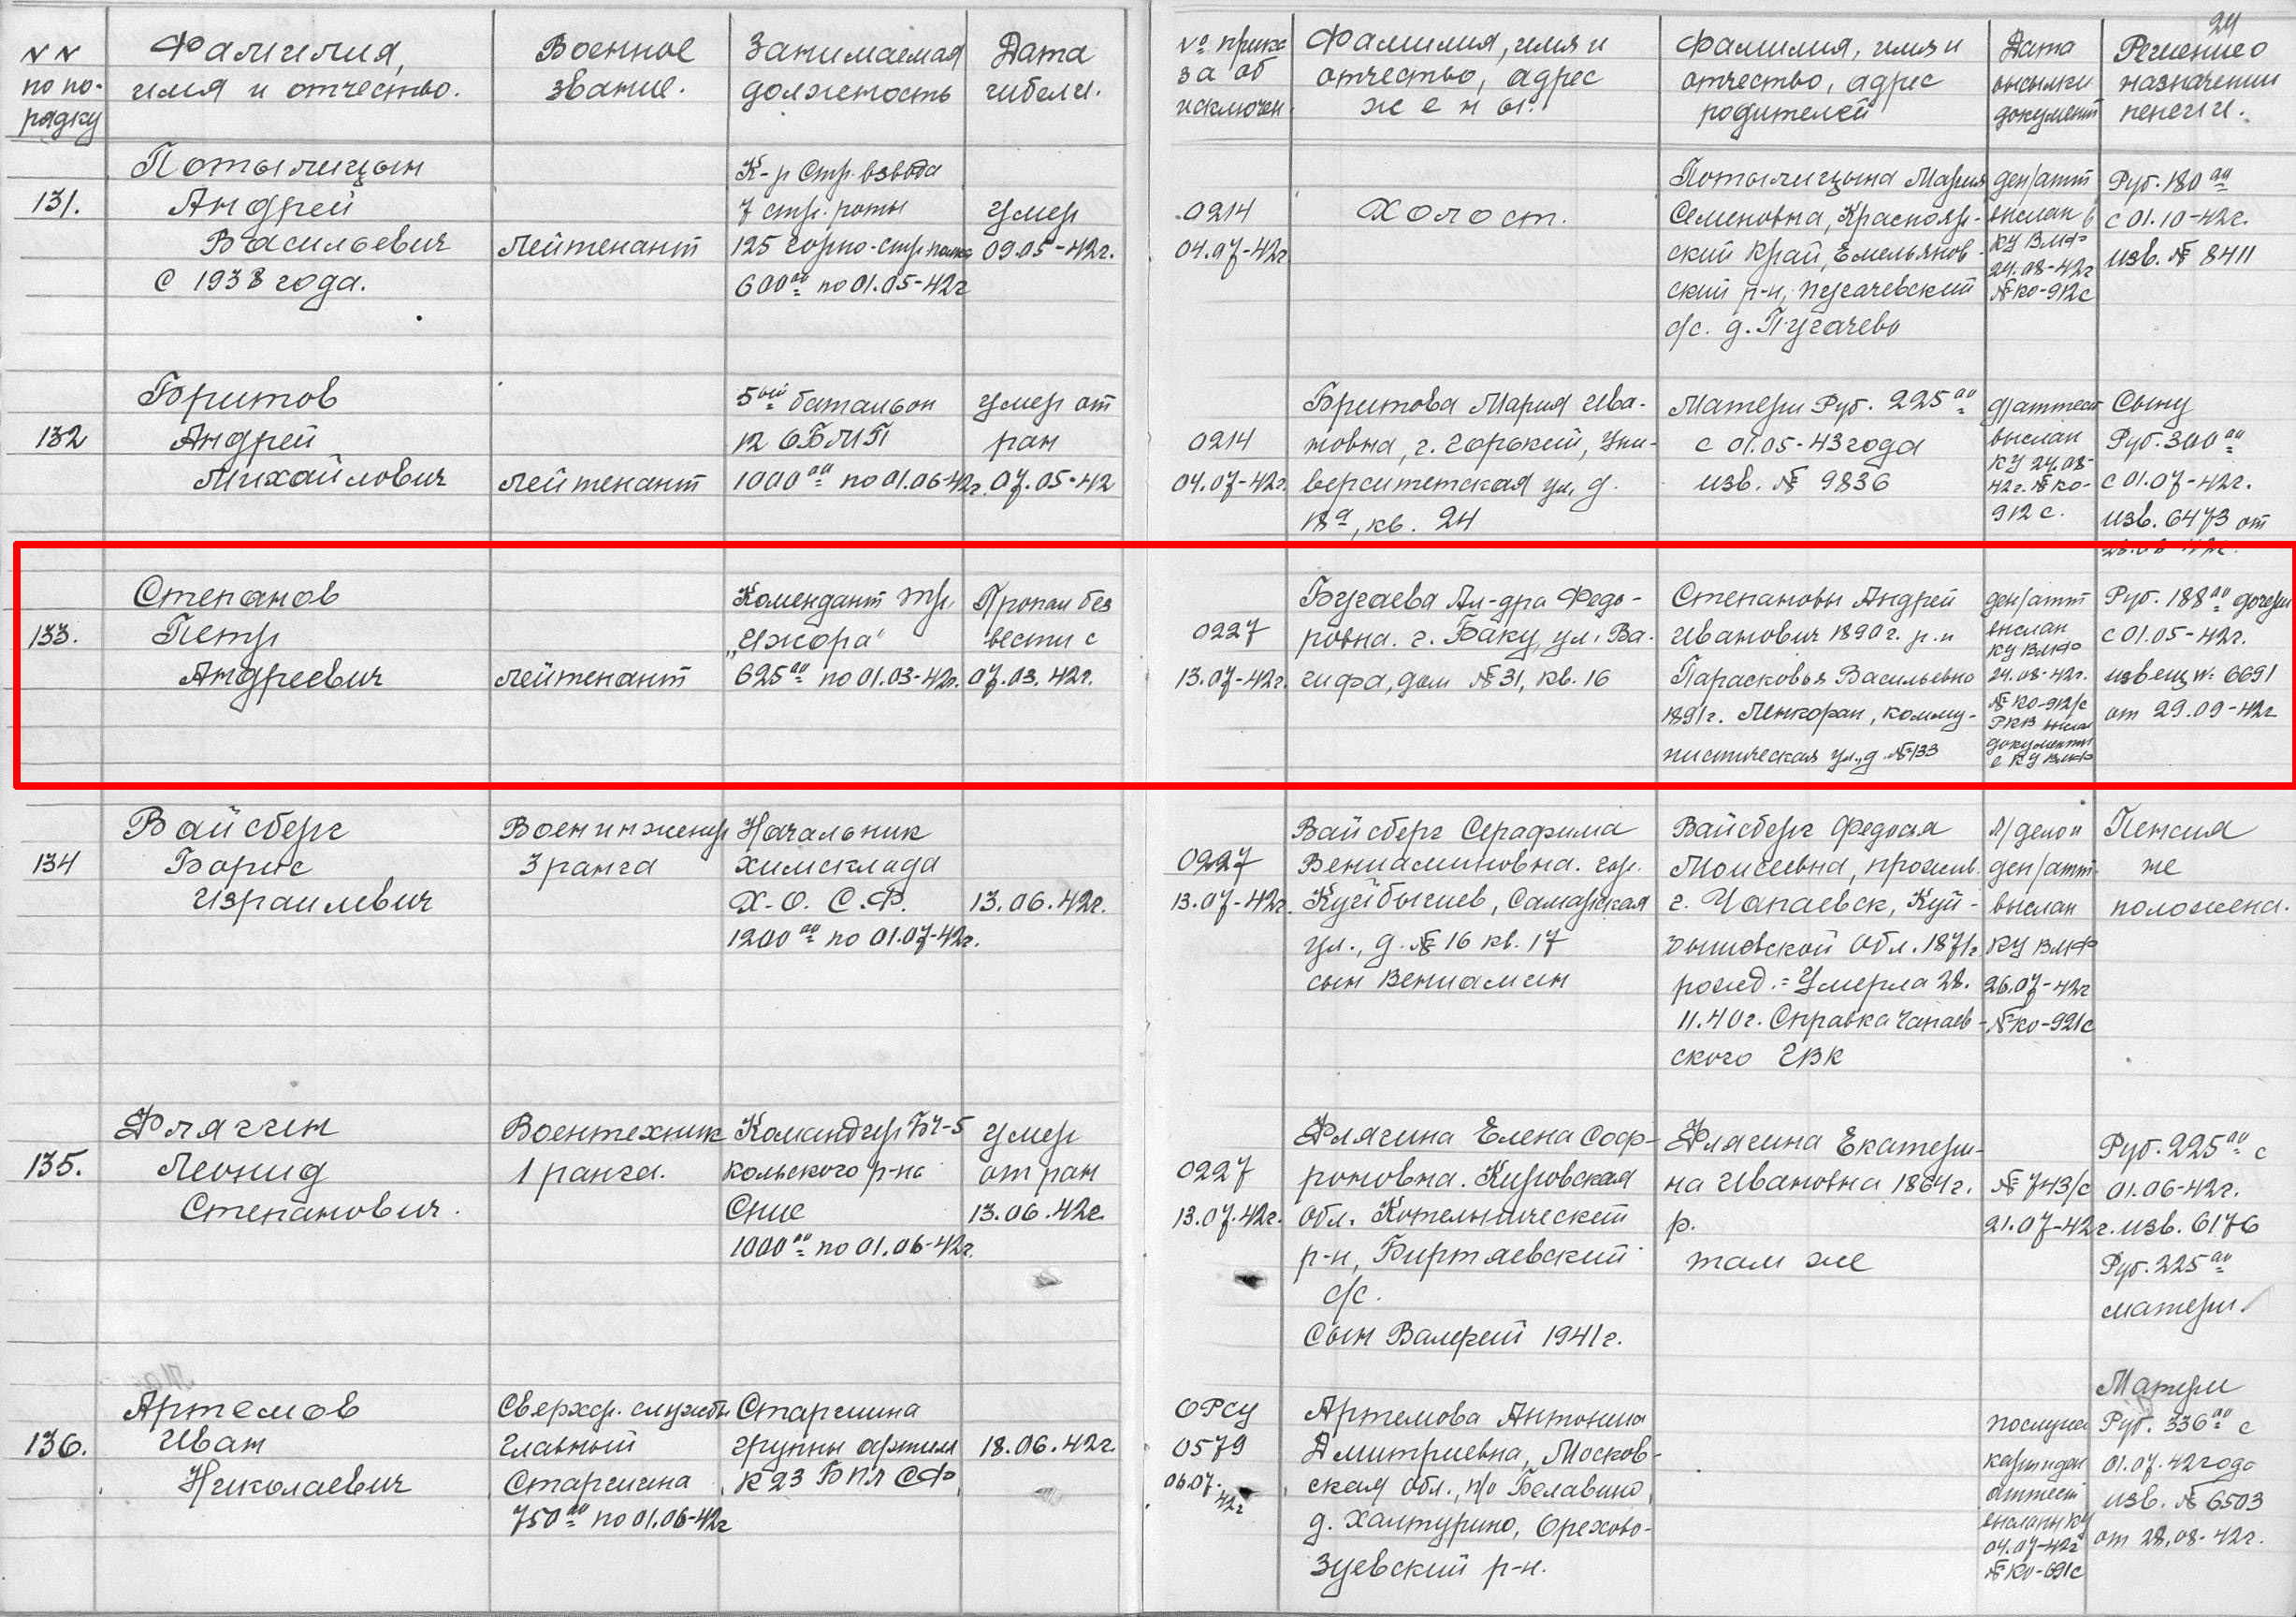 24
№№ по по- рядку
Фамилия, имя и отчество.
Военное звание.
Занимаемая должность
Дата гибели.
№ прика за об исключен.
Фамилия, имя и отчество, адрес жены.
Фамилия, имя и отчество, адрес родителей
Дата высылки документ
Решение о назначении пенсии.
131.
Потылицын
Андрей
Васильевич
с 1938 года.
Лейтенант
К-р Стр. взвода
7 стр. роты
125 горно-стр. полка
600 00 по 01.05-42г
умер
09.05-42г.
0214
04.07-42г
Холост.
Потылицына Мария
Семеновна, Краснояр-
ский край, Емельянов-
ский р-н, Пугачевский
с/с. д. Пугачево
ден/атт
выслан в
КУ ВМФ
24.08-42г
№КО-912с
Руб. 180 00
с 01.10-42г.
изв. № 8411
132
Бритов
Андрей
Михайлович
Лейтенант
5ый батальон
12 ОБМП
1000 00 по 01.06-42г.
умер от
ран
07.05-42
0214
04.07-42г.
Бритова Мария Ива-
новна, г. Горький, Уни-
верситетская ул. д.
18а, кв. 24
Матери Руб. 225 00
с 01.05-43 года
изв. № 9836
д/аттест
выслан
КУ 24.08-
42г. №КО-
912с.
Сыну
Руб. 300 00
с 01.07-42г.
изв. 6473 от
133.
Степанов
Петр
Андреевич
Лейтенант
Комендант тр.
„Ижора"
625 00 по 01.03-42г.
Пропал без
вести с
07.03.42г.
0227
13.07-42г.
Бугаева Ал-дра Федо-
ровна. г. Баку, ул. Ва-
гифа, дом №31, кв. 16
Степановы Андрей
Иванович 1890г. р. и
Парасковья Васильевна
1891г. Ленкорань, комму-
нистическая ул., д. №133
ден/атт
выслан
КУ ВМФ
24.08-42г.
№КО-912/с
РКВ
документы
с КУ ВМФ
Руб. 188 00 дочери
с 01.05-42г.
извещ № 6691
от 29.09-42г
134
Вайсберг
Борис
Израилевич
Военинженер
3 ранга
Начальник
химсклада
Х.О. С.Ф.
1200 00 по 01.07-42г.
13.06.42г.
0227
13.07-42г.
Вайсберг Серафима
Вениаминовна. гор.
Куйбышев, Самарская
ул., д. №16 кв. 17
сын Вениамин
Вайсберг Федосия
Моисеевна, прожив.
г. Чапаевск, Куй-
бышевской обл. 1871г.
рожд. = Умерла 28.
11.40г. Справка Чапаев-
ского ГВК
л/дело и
ден/атт
выслан
КУ ВМФ
26.07-42г
-№КО-921с
Пенсия
не
положена.
135.
Флягин
Леонид
Степанович.
Воентехник
1 ранга.
Командир БЧ-5
кольского р-на
СНиС
1000 00 по 01.06-42г.
умер
от ран
13.06.42г.
0227
13.07.42г.
Флягина Елена Соф-
роновна. Кировская
обл. Котельнический
р-н, Биртяевский
с/с.
Сын Валерий 1941г.
Флягина Екатери-
на Ивановна 1864г.
р.
там же
№743/с
21.07-42г.
Руб. 225 00 с
01.06-42г.
изв. 6176
Руб. 225 00
матери.
136.
Артемов
Иван
Николаевич
Сверхср. службы
Главный
Старшина
750 00 по 01.06-42г
Старшина
группы
К 23 БПЛ СФ
18.06.42г.
ОРСУ
0579
06.07.
42г
Артемова Антонина
Дмитриевна, Москов-
ская обл., п/о Белавино,
д. Халтурино, Орехово-
Зуевский р-н.
аттест
высланы КУ
04.07-42г
№КО-691с
Матери
Руб. 336 00 с
01.07.42 года
изв. № 6503
от 28.08-42г.